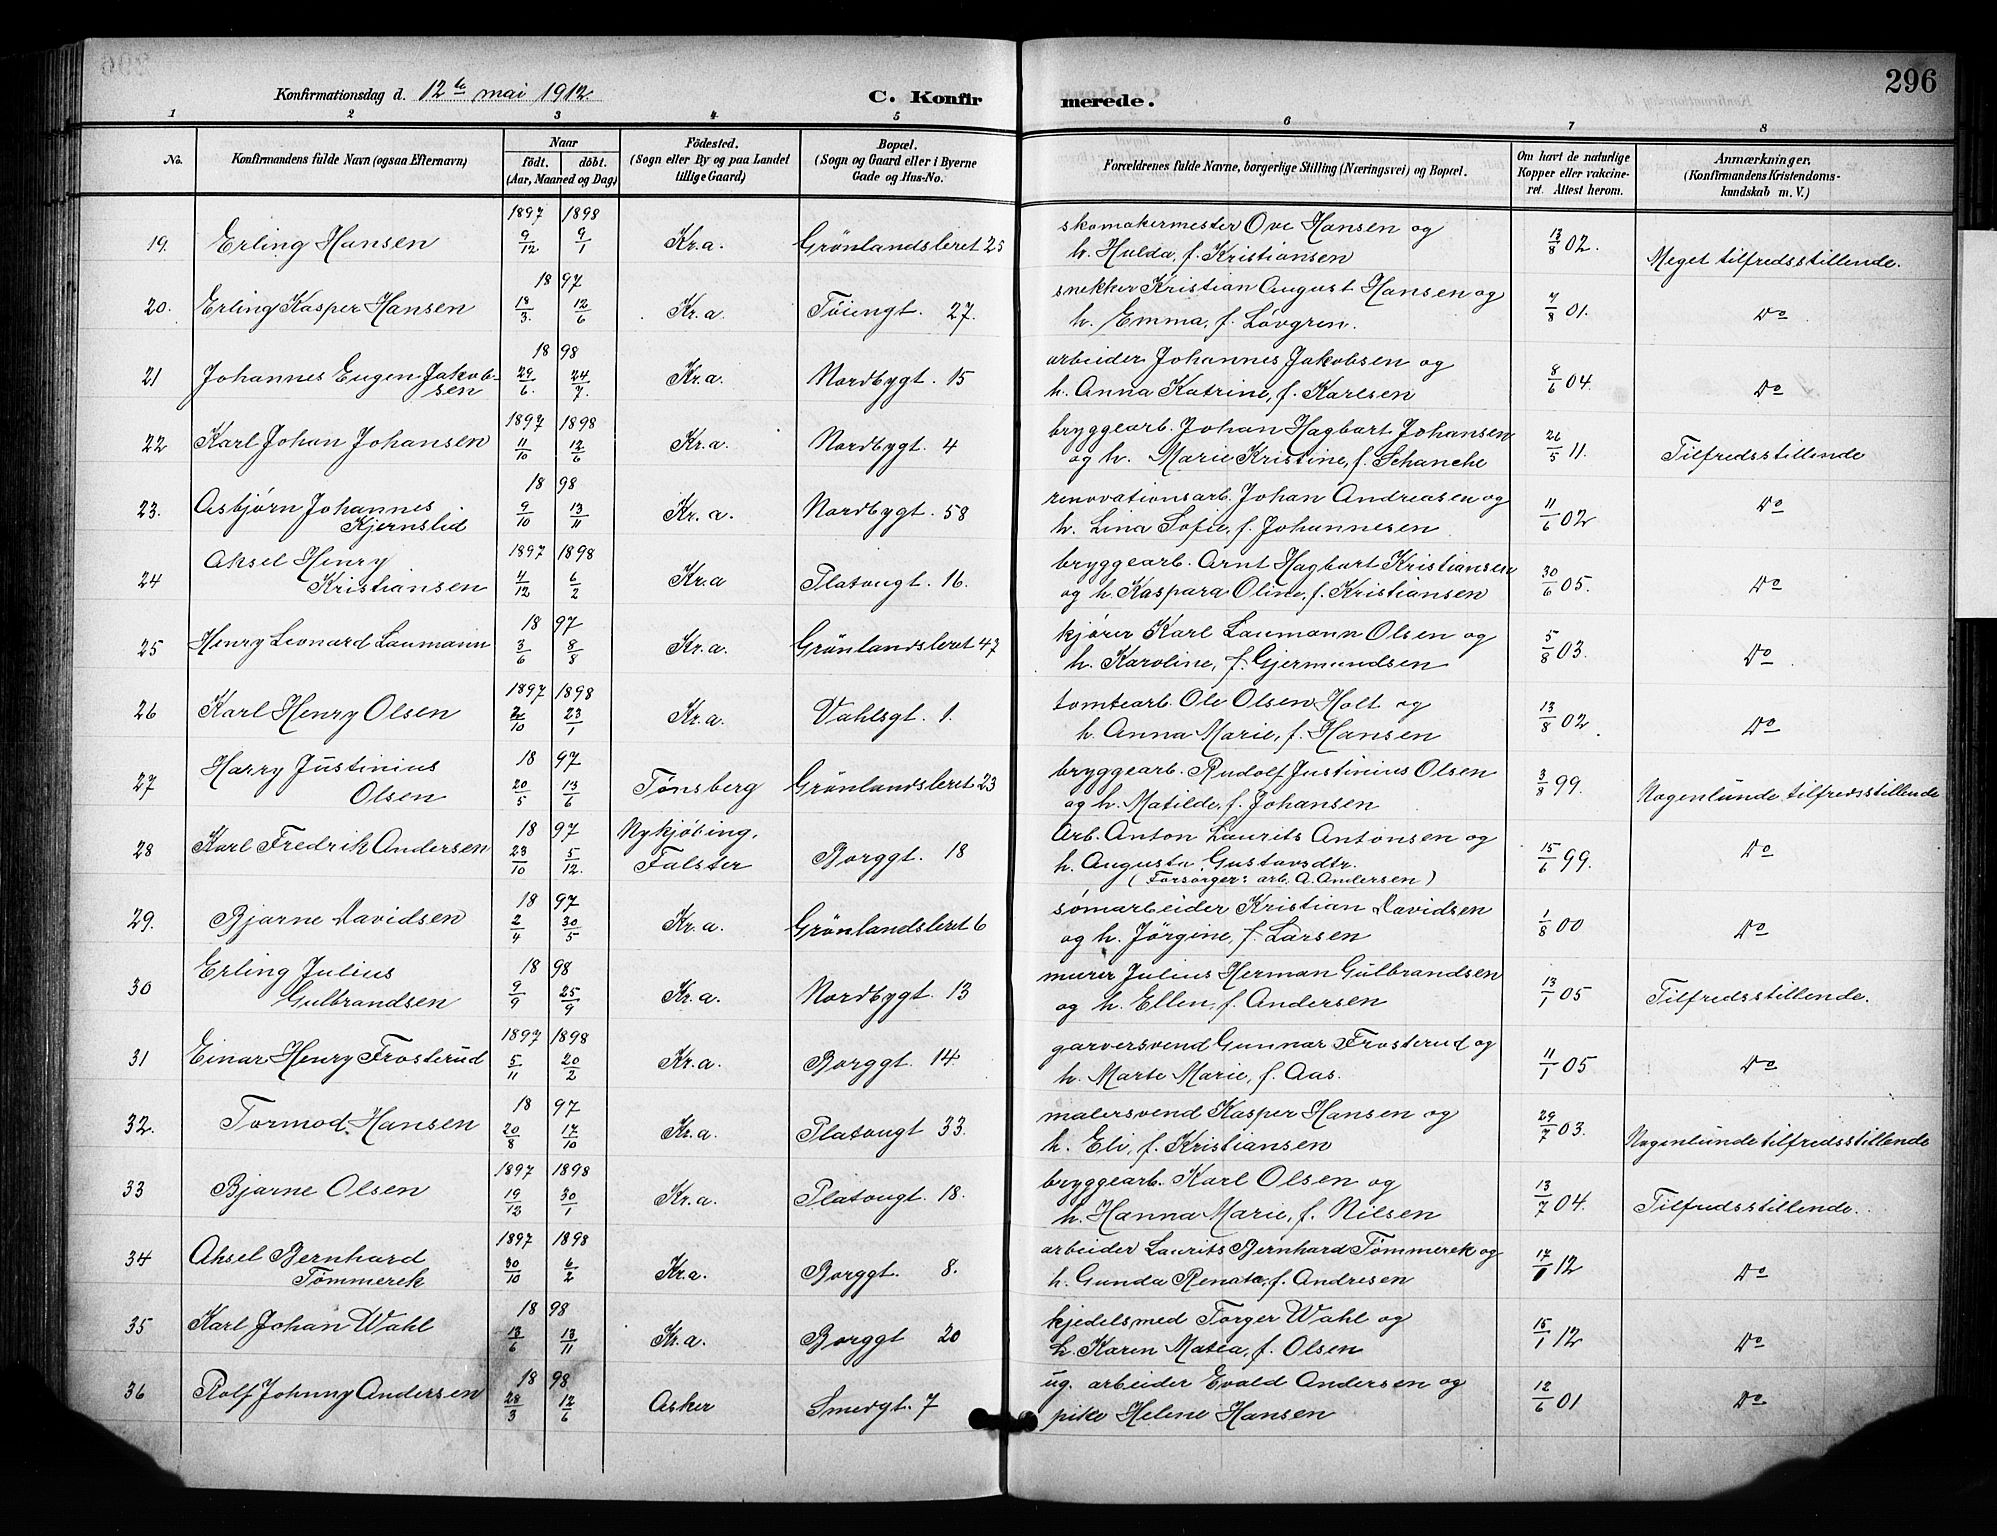 296
Konfirmationsdag d. 12te mai 1912
C. Konfirmerede.
1 2 3 4 5 6 7 8
No. Konfirmandens fulde Navn (ogsaa Efternavn) Naar födt. döbt. (Aar, Maaned og Dag) Födested. (Sogn eller By og paa Landet tillige Gaard) Bopæl. (Sogn og Gaard eller i Byerne Gade og Hus-No. Forældrenes fulde Navne, borgerlige Stilling (Næringsvei) og Bopæl. Om havt de naturlige Kopper eller vakcineret. Attest herom. Anmærkninger. (Konfirmandens Kristendomskundskab m. V.)
19. Erling Hansen 1897 9/12 1898 9/1 Kr.a. Grönlandsleret 25 skomakermester Ove Hansen og
h. Hulda, f. Kristiansen 13/8 02. Meget tilfredsstillende.
20. Erling Kasper Hansen 1897 18/3. 12/6 Kr.a. Töiengt. 27. snekker Kristian August Hansen og
h. Emma, f. Lövgren. 7/8 01. Do
21 Johannes Eugen Jakobsen 1898 29/6. 24/7. Kr.a. Nordbygt. 15 arbeider Johannes Jakobsen og
h. Anna Katrine, f. Karlsen 8/6 04. Do
22 Karl Johan Johansen 1897 11/10 1898 12/6 Kr.a. Nordbygt. 4 bryggearb. Johan Hagbart Johansen
og h. Marie Kristine, f. Schanche 26/5 11. Tilfredsstillende
23. Asbjørn Johannes Kjernslid 1898 9/10 13/11 Kr.a. Nordbygt. 58 renovationsarb. Johan Andreasen og
h. Lina Sofie, f. Johannesen 11/6 02 Do
24 Aksel Henry Kristiansen 1897 4/12 1898 6/2 Kr.a Platougt. 16. bryggearb. Arnt Hagbart Kristiansen
og h. Kaspara Oline, f. Kristiansen 30/6 05. Do
25 Henry Leonard Laumann 1897 3/6 8/8 Kr.a. Grönlandsleret 47 kjører Karl Laumann Olsen og
h. Karoline, f. Gjermundsen 5/8 03. Do
26 Karl Henry Olsen 1897 /10 1898 23/1 Kr.a. Vahlsgt. 1. tomtearb. Ole Olsen Holt og
h. Anna Marie, f. Hansen 13/8 02 Do
27 Harry Justinius Olsen 1897 20/5 13/6 Tønsberg Grønlandsleret 23 bryggearb. Rudolf Justinius Olsen
og h. Matilde, f. Johansen 3/8 99. Nogenlunde tilfredsstillende
28 Karl Fredrik Andersen 1897 23/10 5/12. Nykjøbing, Falster Borggt. 18 Arb. Anton Laurits Antonsen og
h. Augusta Gustavsdtr.
(Forsörger: arb. A. Andersen) 15/6 99. Do
29. Bjarne Davidsen 1897 2/4 30/5 Kr.a. Grönlandsleret 6 sømarbeider Kristian Davidsen
og h. Jörgine, f. Larsen 1/8 00 Do
30 Erling Julius Gulbrandsen 1898 9/9 25/9 Kr.a. Nordbygt. 13 murer Julius Herman Gulbrandsen
og h. Ellen, f. Andersen 13/1 05 Tilfredsstillende.
31 Einar Henry Frosterud 1897 5/11 1898 20/2 Kr.a. Borggt. 14. garversvend Gunnar Frosterud og
h. Marte Marie, f. Aas. 11/1 05 Do
32. Tormod Hansen 1897 20/8 17/10 Kr.a. Platougt 33. malersvend Kasper Hansen og
h. Eli, f. Kristiansen 29/7 03. Nogenlunde tilfredsstillende
33 Bjarne Olsen 1897 19/12 1898 30/1 Kr.a. Platougt. 18. bryggearb. Karl Olsen og
h. Hanna Marie, f. Nilsen 13/7 04. Tilfredsstillende.
34 Aksel Bernhard Tömmerek 1897 30/10 1898 6/2 Kr.a. Borggt. 8. arbeider Laurits Bernhard Tömmerek og
h. Gunda Renata, f. Andresen 17/ 12 Do
35 Karl Johan Wahl 1898 13/6 13/11 Kr.a. Borggt 20 kjedelsmed Torger Wahl og
h. Karen Matea, f. Olsen 15/1 12 Do
36 Rolf Johnny Andersen 1898 28/3 12/6 Asker Smedgt. 7 ug. arbeider Evald Andersen og
pike Helene Hansen 12/6 01 Do